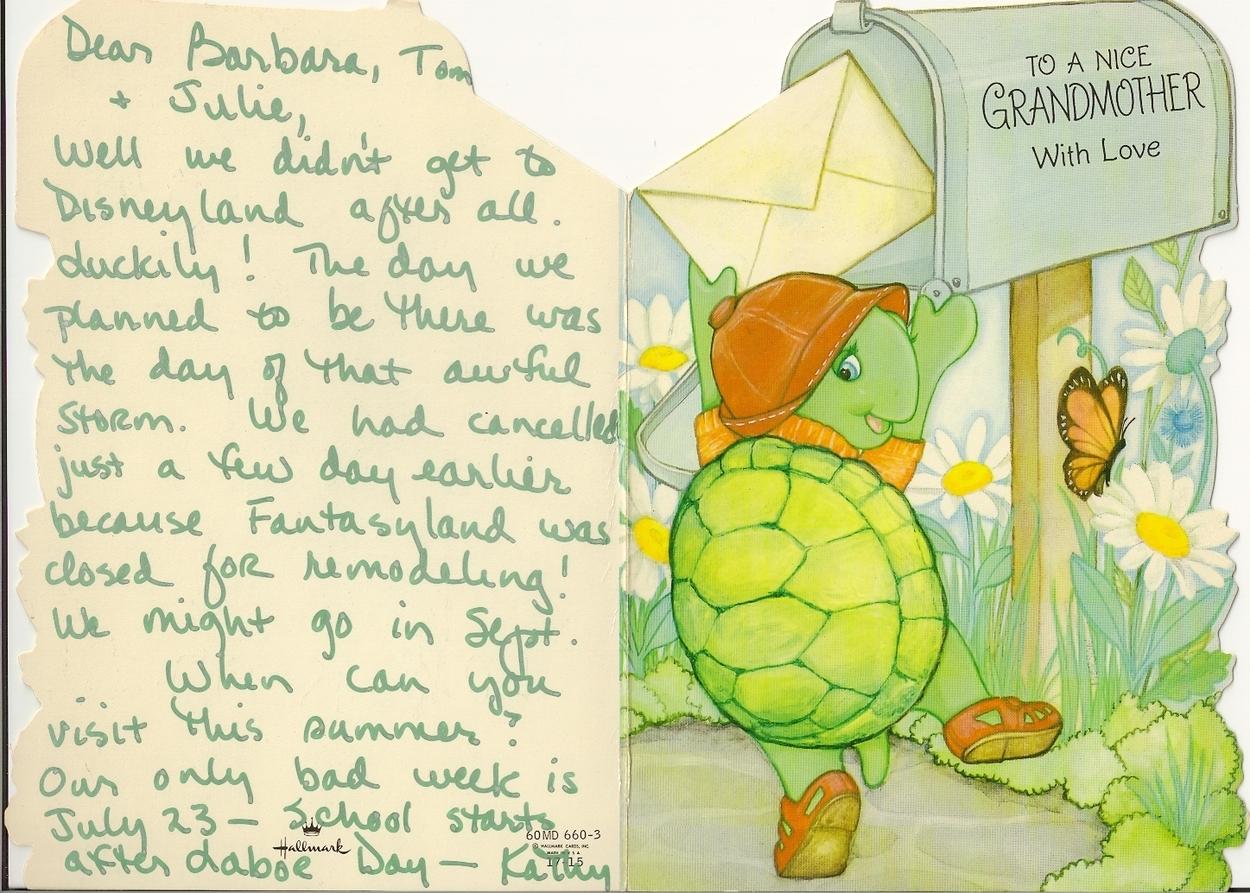 Dear Barbara, Tom
+ Julie,
Well we didn't get to
Disneyland after all.
Luckily! The day we
planned to be there was
the day of that awful
storm. We had cancelled
just a few day earlier
because Fantasyland was
closed for remodeling!
We might go in Sept.
When can you
visit this summer?
Our only bad week is
July 23 — School starts
after Laboe Day — Kathy
Hallmark
60MD 660-3
© HALLMARK CARDS, INC.
MADE IN U.S.A
17-15
TO A NICE
GRANDMOTHER
With Love